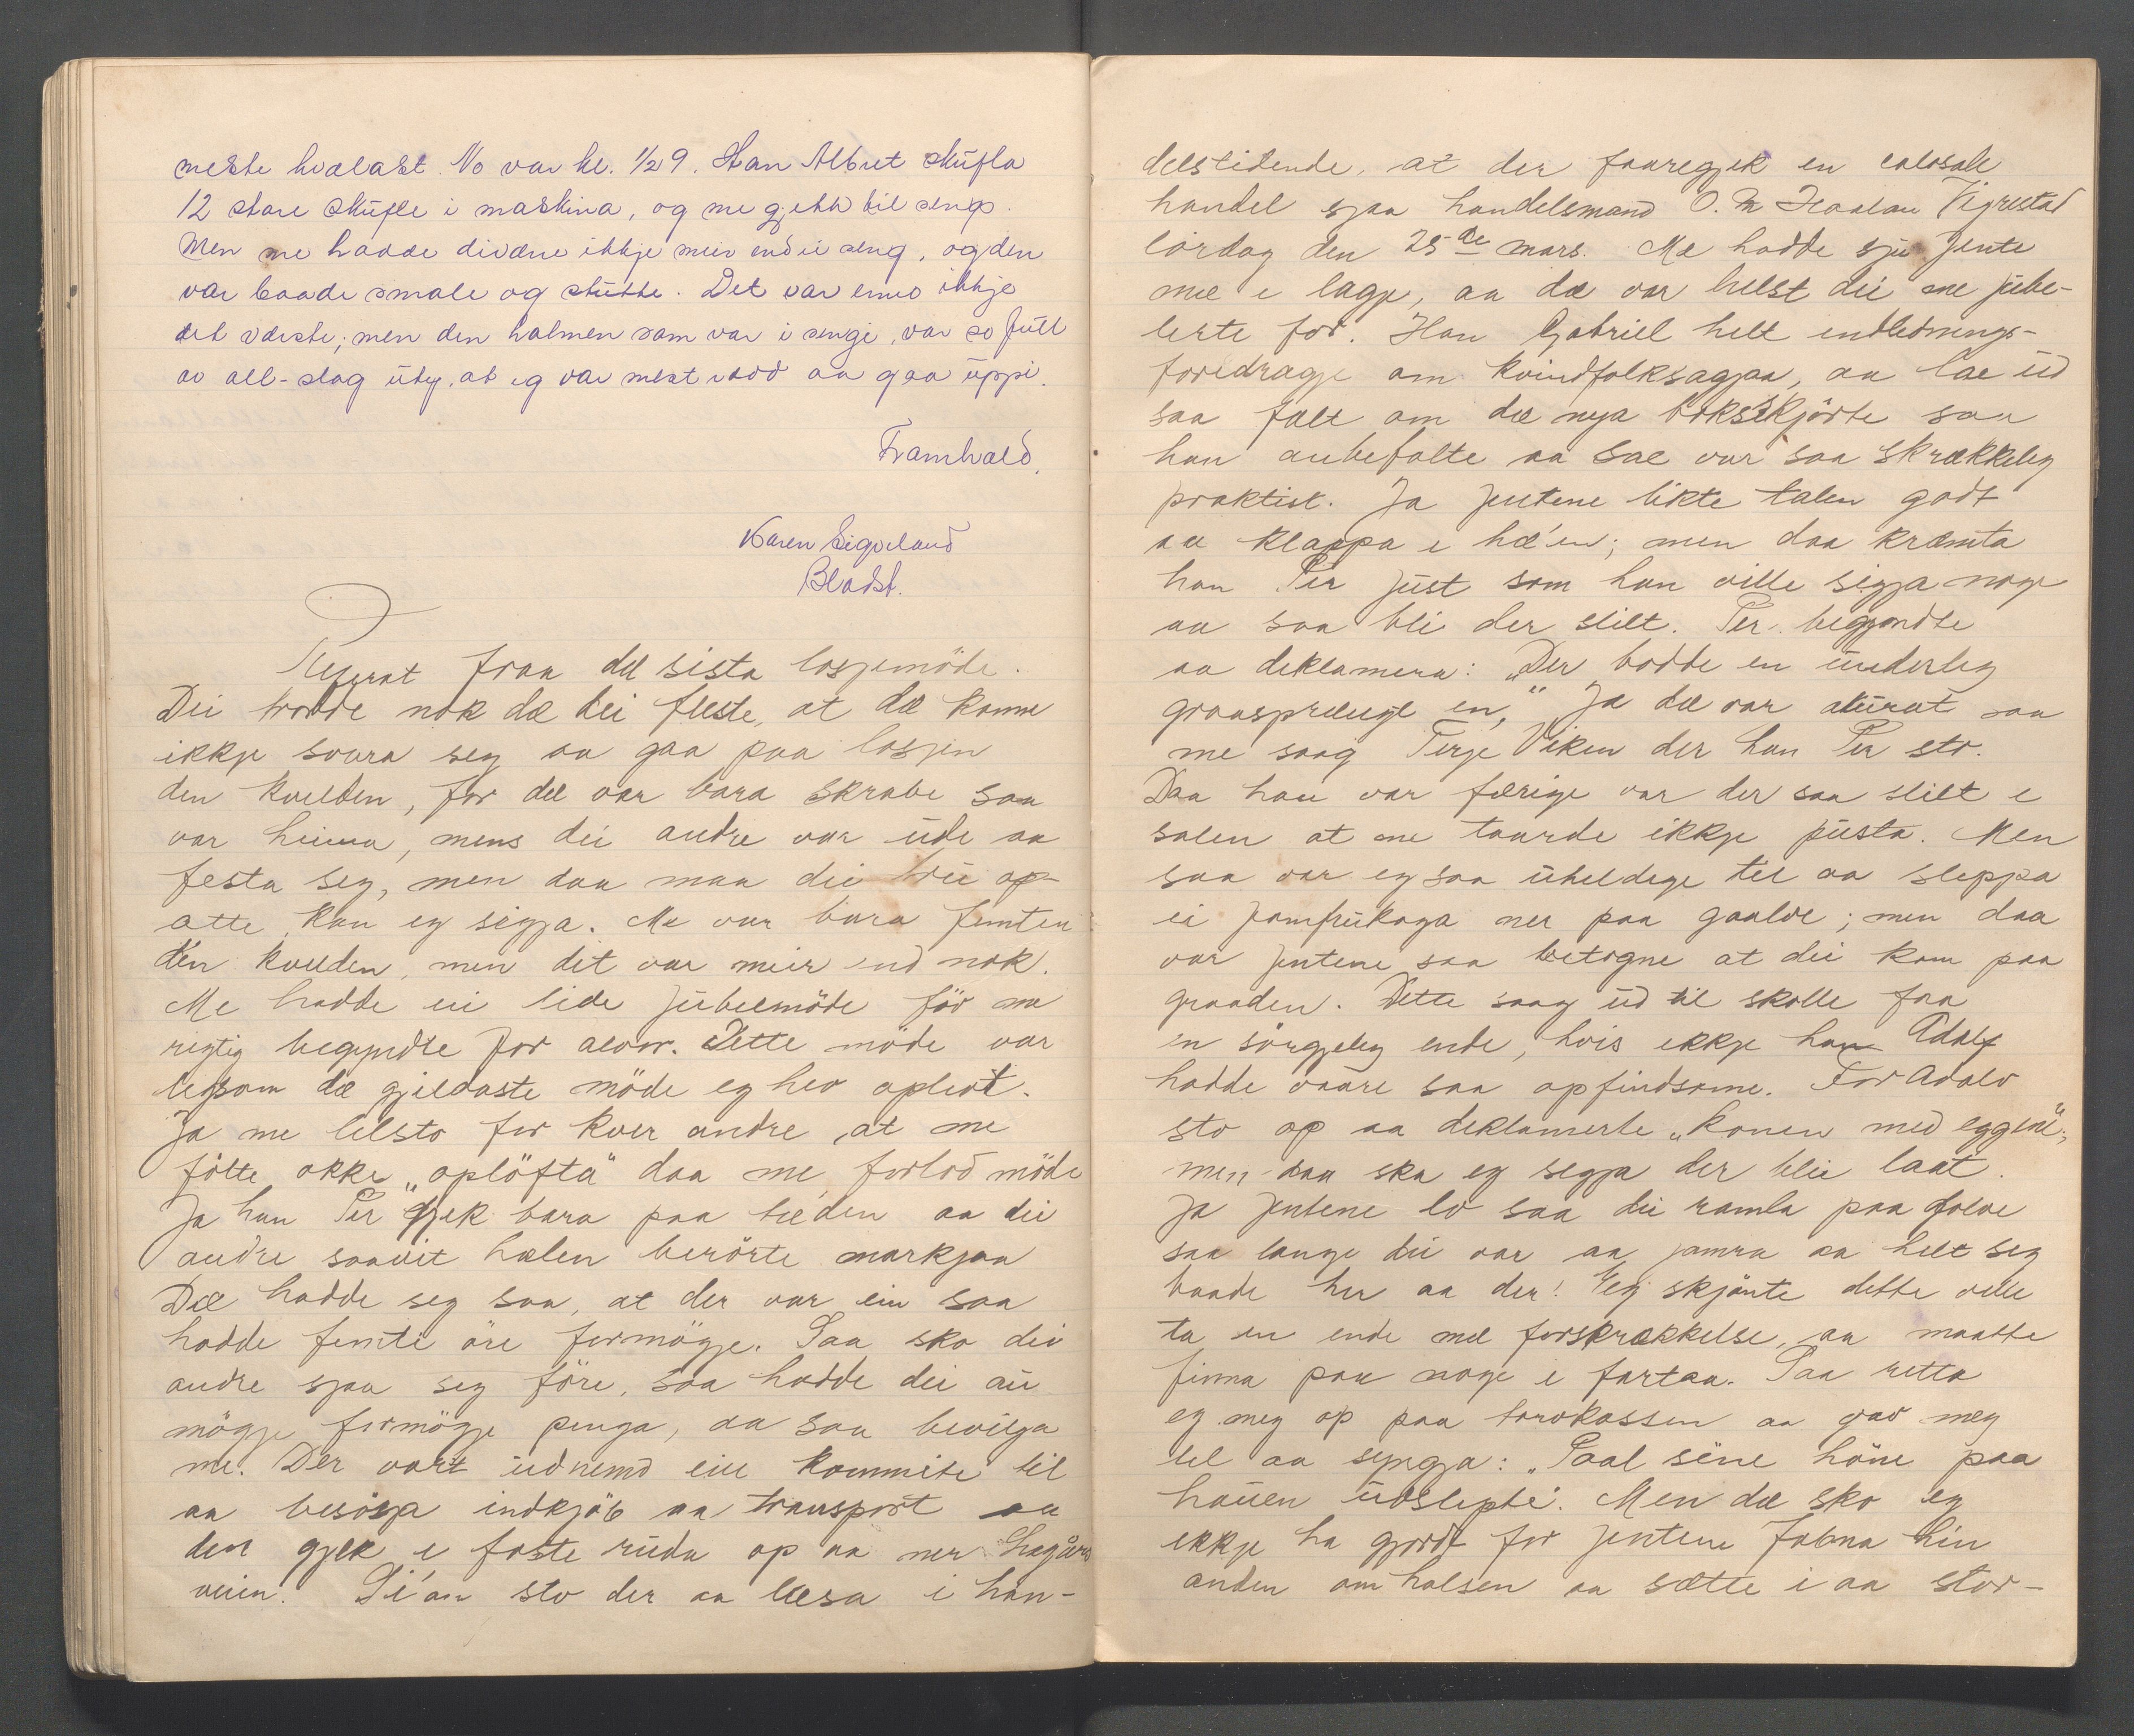 meste hvælast. No var kl. ½ 9. Han Albret skufla
12 store skufle i maskina, og me gjekk til sengs.
Men me hadde divære ikkje meir end ei seng, og den
var baade smale og stutte. Det var enno ikkje
det værste; men den halmen som var i sengi, var so full
av all-slag utyg, at eg var mest rædd aa gaa uppi.
Framhald.
Karen Sigveland
Bladst.
Referat fraa dæ sista losjemöde.
Dei trodde nok dæ dei fleste, at dæ kunne
ikkje svara seg aa gaa paa losjen
den kvelden, for dæ var bara skrabe saa
var heima, mens dei andre var ude aa
festa seg, men daa maa dei tru op
atte, kan eg sigja. Me var bara femten
den kvelden, men dit var meir end nok.
Me hadde ei lide jubelmöde för me
rigtig begyndte for alvor. Dette möde var
ligsom dæ gjildaste möde eg hev oplevt.
Ja me tilsto for kver andre, at me
fölte okke „oplöfta" daa me forlod möde
Ja han Per gjek bara paa tæden aa dei
andre saavit hælen berörte markjaa
Dæ hadde seg saa, at der var ein saa
hadde femti öre formögje. Saa sko dei
andre sjaa seg före, saa hadde dei au
mögje formögje penga, aa saa bevilga
me. Der vart udnemd ein kommite til
aa besörja indkjöb aa transport aa
den gjek i faste ruda op aa ner
veien. Si'an sto der aa læsa i han-
delstidende, at der foaregjek en colosale
handel sjaa handelsmand O. M. Vigrestad
lördag den 25de mars. Me hadde sju jente
mæ i lagje, aa dæ var helst dei me jube-
lerte for. Han Gabriel helt indlednings-
foredragje om kvindfolksagjaa, aa læ ud
saa fælt om dæ nya bokseskjörte saa
han anbefalte aa sae var saa skrækkeleg
praktisk. Ja jentene likte talen godt
aa klappa i hæ'en; men daa kræmta
han Per just som han ville sigja noge
aa saa blei der stilt. Per begjyndte
aa deklamera: „Der bodde en underlig
graasprængt en," Ja dæ var akurat saa
me saag Terje Viken der han Per sto.
Daa han var færige var der saa stilt i
salen at me taurde ikkje pusta. Men
saa var eg saa uheldige til aa sleppa
ei jomfrukaga ner paa gaalve; men daa
var jentene saa betogne at dei kom paa
graaden. Dette saag ud til skolle faa
en sörgjeleg ende, hvis ikkje han Adolf
hadde vaare saa opfindsome. For Adolv
sto op aa deklamerte „Konen med eggene",
men daa ska eg segja der blei laat.
Ja jentene lo saa dei ramla paa golve
saa lange dei var aa jamra aa helt seg
baade her aa der! Eg skjönte dette ville
ta en ende mæ forskrækkelse, aa maatte
finna paa noge i fartaa. Saa retta
eg meg op paa torvkassen aa gav meg
til aa syngja: „Paal sine höne paa
hauen udslepte". Men dæ sko eg
ikkje ha gjordt for jentene fabna hin
anden om halsen aa sætte i aa stor-